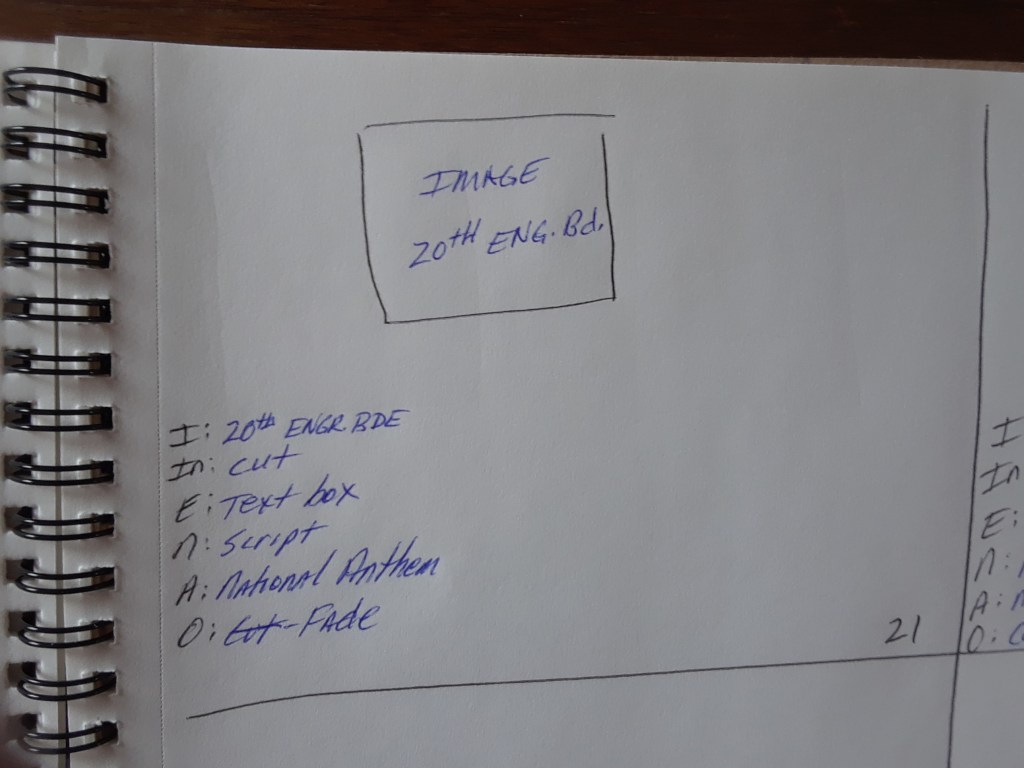 IMAGE
20th ENG. Bd.
I: 20th ENGR. BDE
In: Cut
E: Text box
N: Script
A: National Anthem
O: Cut-Fade
21
I
In
E:
N:
A:
O: